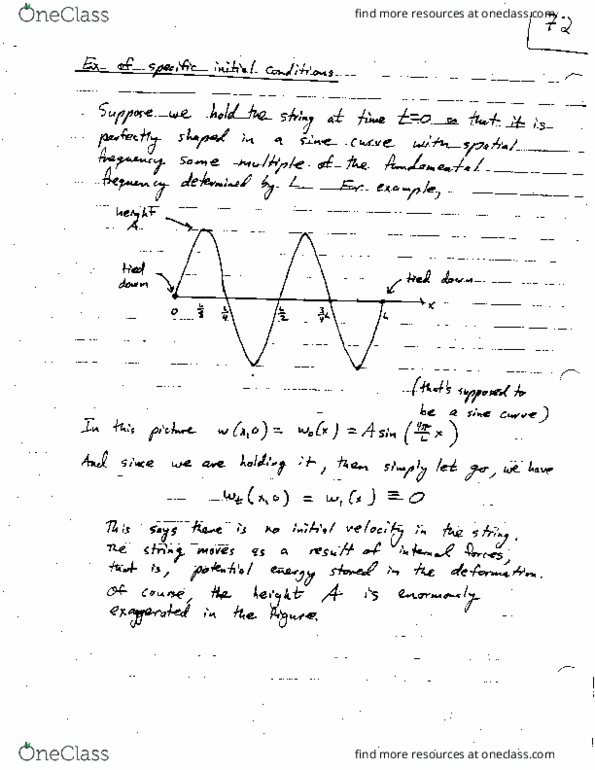 OneClass
find more resources at oneclass.com
72
Ex of specific initial conditions
Suppose we hold the string at time t=0 so that it is
perfectly shaped in a sine curve with spatial
frequency some multiple of the fundamental
frequency determined by L For example,
height
A
tied
down
tied down
0 L/8 L/4 L/2 3/4 L L x
(that's supposed to
be a sine curve)
In this picture w(x,0) = w₀(x) = A sin (4π/L x)
And since we are holding it, then simply let go, we have
w_t(x,0) = w₁(x) ≡ 0
This says there is no initial velocity in the string.
The string moves as a result of internal forces,
that is, potential energy stored in the deformation.
Of course, the height A is enormously
exaggerated in the figure.
OneClass
find more resources at oneclass.com